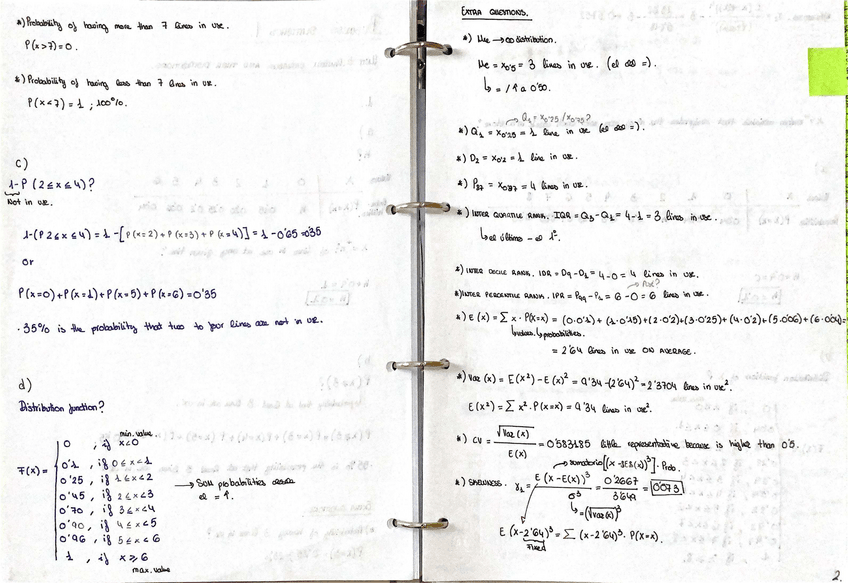 *) Probability of having more than 7 lines in use.
P(x>7)=0.
*) Probability of having less than 7 lines in use.
P(x<7)=1 ; 100%.
c)
1-P (2≤x≤4)?
Not in use.
1-(P 2≤x≤4) = 1-[P(x=2)+P(x=3)+P(x=4)] = 1-0'65=0'35
or
P(x=0)+P(x=1)+P(x=5)+P(x=6)=0'35
· 35% is the probability that two to four lines are not in use.
d)
Distribution function?
min. value
0 , if x<0
0'1 , if 0≤x<1
F(x)= 0'25 , if 1≤x<2
→ Sum probabilities desde
0'45 , if 2≤x<3
el = ↑.
0'70 , if 3≤x<4
0'90 , if 4≤x<5
0'96 , if 5≤x<6
1 , if x≥6
max. value
EXTRA QUESTIONS.
*) Me → distribution.
Me = x0'5 = 3 lines in use. (el =).
↳ = / ↑ a 0'50.
→ Q1 = x0'25 / x0'75?
*) Q1 = x0'25 = 1 line in use (el =).
*) D2 = x0'2 = 1 line in use.
*) P87 = x0'87 = 4 lines in use.
*) INTER QUARTILE RANK. IQR = Q3-Q1 = 4-1 = 3 lines in use.
↳ el último - el 1º.
*) INTER DECILE RANK. IDR = D9-D1 = 4-0 = 4 lines in use.
*) INTER PERCENTILE RANK. IPR = P99-P1 = 6-0 = 6 lines in use.
*) E(x) = Σ x · P(X=x) = (0·0'1) + (1·0'15)+(2·0'2)+(3·0'25)+(4·0'2)+(5·0'06)+(6·0'04)=
↳values ↳probabilities.
= 2'64 lines in use ON AVERAGE.
*) Var (x) = E(x²) - E(x)² = 9'34-(2'64)² = 2'3704 lines in use².
E(x²) = Σ x² · P(X=x) = 9'34 lines in use².
*) CV = √Var(x) / E(x) = 0'583185 little representative because is higher than 0'5.
*) SKEWNESS. γ1 = E (x-E(x))³ / σ³ = 0'2667 / 3'649 = 0'073
↳ = (√Var(x))³
E (x-2'64)³ = Σ (x-2'64)³ · P(X=x).
Fixed
2.